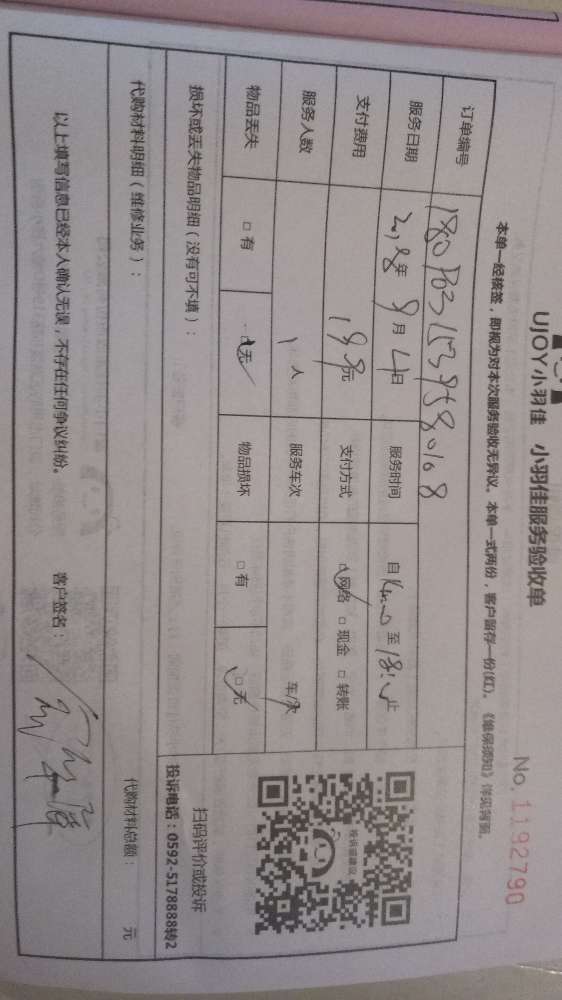 UJOY小羽佳 小羽佳服务验收单
No. 1192790
本单一经核签,即视为对本次服务验收无异议。本单一式两份,客户留存一份(红)。《维保须知》详见背面。
订单编号
服务日期 2018年9月4日 服务时间 自 至 18:00止
支付费用 198元 支付方式 网络 □ 现金 □ 转账
服务人数 1人 服务车次 车/次
物品丢失 □ 有 □ 无 物品损坏 □ 有 □ 无
扫码评价或投诉
投诉电话:0592-5178888转2
投诉或建议
损坏或丢失物品明细(没有可不填):
代购材料明细(维修业务):
代购材料总额: 元
以上填写信息已经本人确认无误,不存在任何争议纠纷。 客户签名: